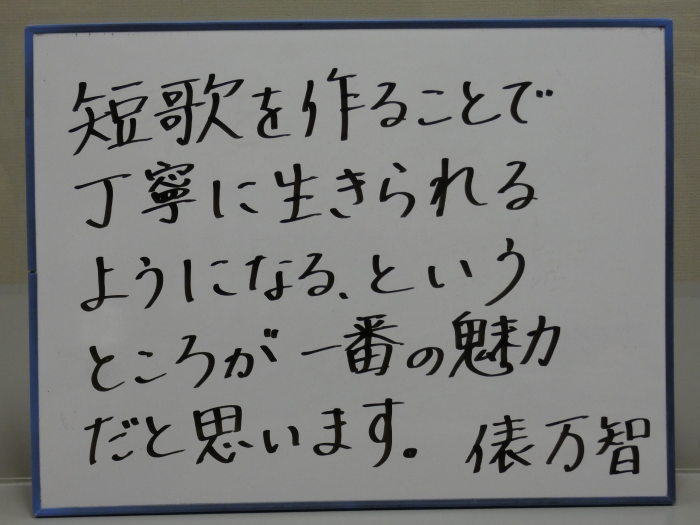 短歌を作ることで
丁寧に生きられる
ようになる、という
ところが一番の魅力
だと思います。 俵万智